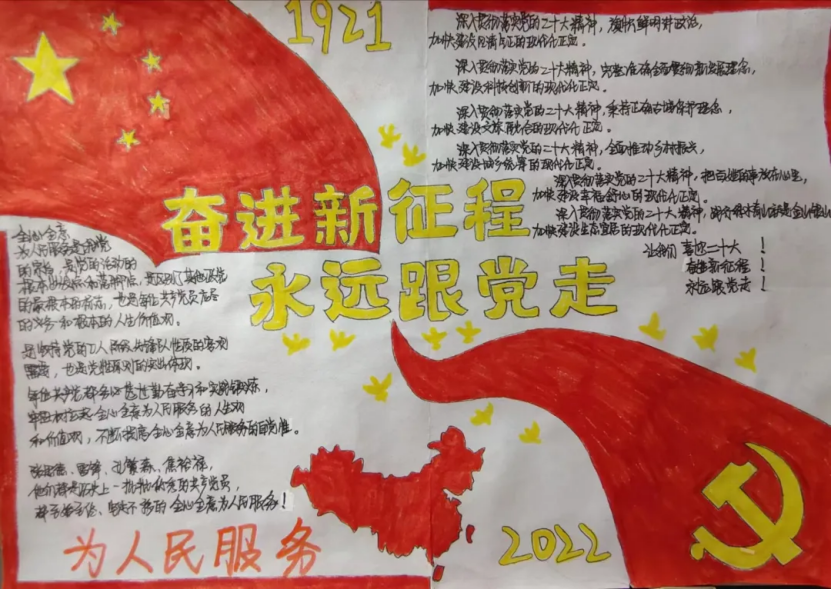 1921
深入贯彻落实党的二十大精神，旗帜鲜明讲政治，
加快建设风清气正的现代化正定。
深入贯彻落实党的二十大精神，完整准确全面贯彻新发展理念，
加快建设科技创新的现代化正定。
深入贯彻落实党的二十大精神，秉持正确古城保护理念，
加快建设文旅融合的现代化正定。
深入贯彻落实党的二十大精神，全面推动乡村振兴，
加快建设城乡统筹的现代化正定。
深入贯彻落实党的二十大精神，把百姓的事放在心里，
加快建设幸福舒心的现代化正定。
深入贯彻落实党的二十大精神，
加快建设生态宜居的现代化正定。
让我们 喜迎二十大！
奋进新征程！
永远跟党走！
奋进新征程
永远跟党走
全心全意
为人民服务是我党
的宗旨，是党的活动的
根本出发点和落脚点，是我们
的最根本的标志，也是每位共产党员应尽
的义务和根本的人生价值观。
是坚持党的工人阶级先锋队性质的客观
需要，也是党性原则的突出体现。
每位共产党
牢固树立起全心全意为人民服务的人生观
和价值观，不断提高全心全意为人民服务的自觉性。
张思德、雷锋、孔繁森、焦裕禄，
他们都是历史上一批批优秀的共产党员，
全心全意为人民服务！
为人民服务
2022